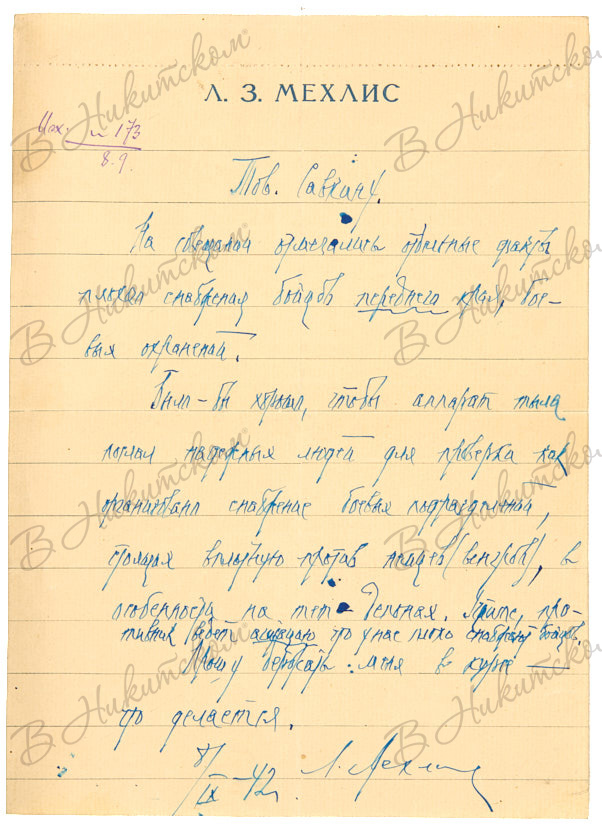 Л. З. МЕХЛИС
Исх. № 173
8.9.
Тов. Савкину.
На совещании отмечались отдельные факты
плохого снабжения бойцов переднего края, бое-
вых охранений.
Было-бы хорошо, чтобы аппарат тыла
послал надежных людей для проверки как
организовано снабжение боевых подразделений,
стоящих вплотную против немцев (венгров), в
особенности на
противник ведет агитацию что у нас плохо снабжают бойцов.
Прошу держать меня в курсе —
что делается.
8/IX-42г. Л. Мехлис
В Никитском